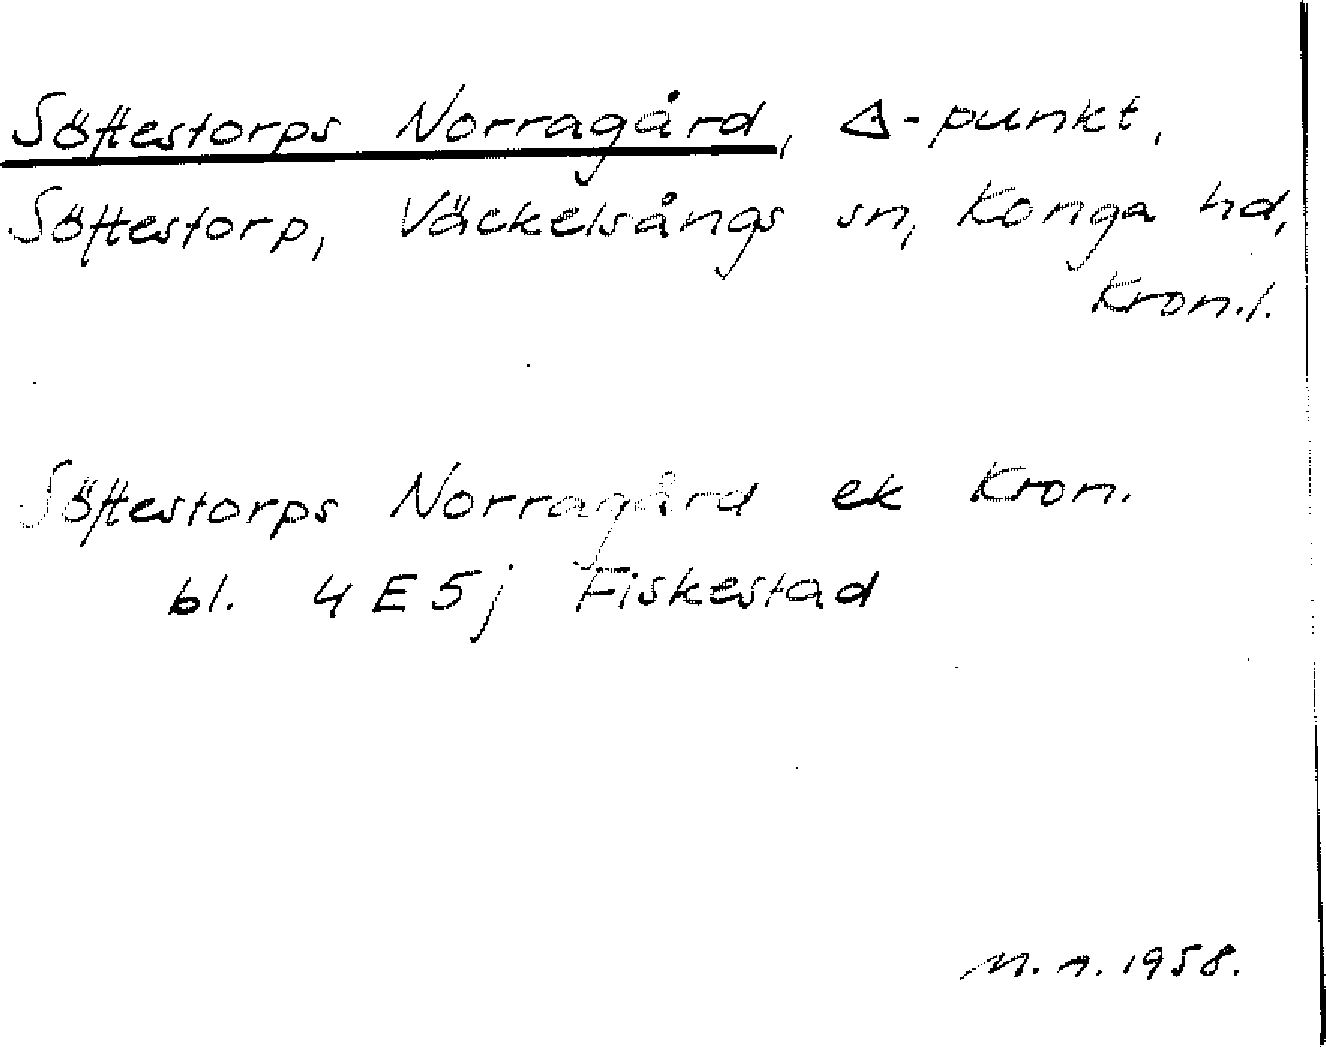 Söftestorps Norragård, Δ-punkt,
Söftestorp, Väckelsångs sn, Konga hd,
Kron.l.
Söftestorps Norragård ek Kron.
bl. 4 E 5 j Fiskestad
M. A. 1958.